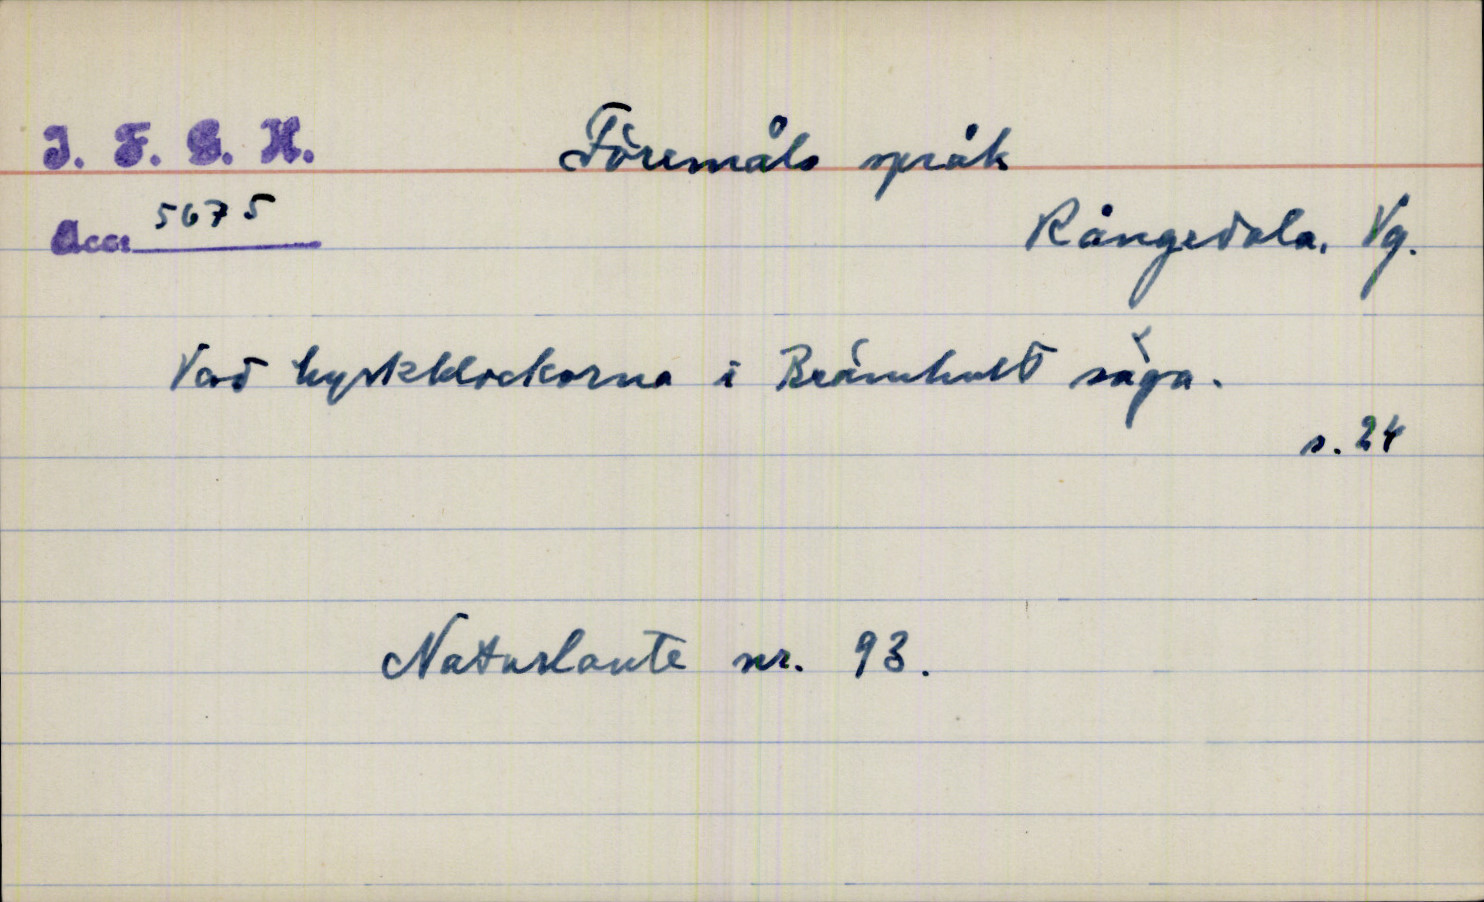 I. F. G. H.
Föremåls språk
Acc: 5675
Rångedala, Vg.
Vad kyrkklockorna i Brämhult säga.
s. 24
Naturlaute nr. 93.